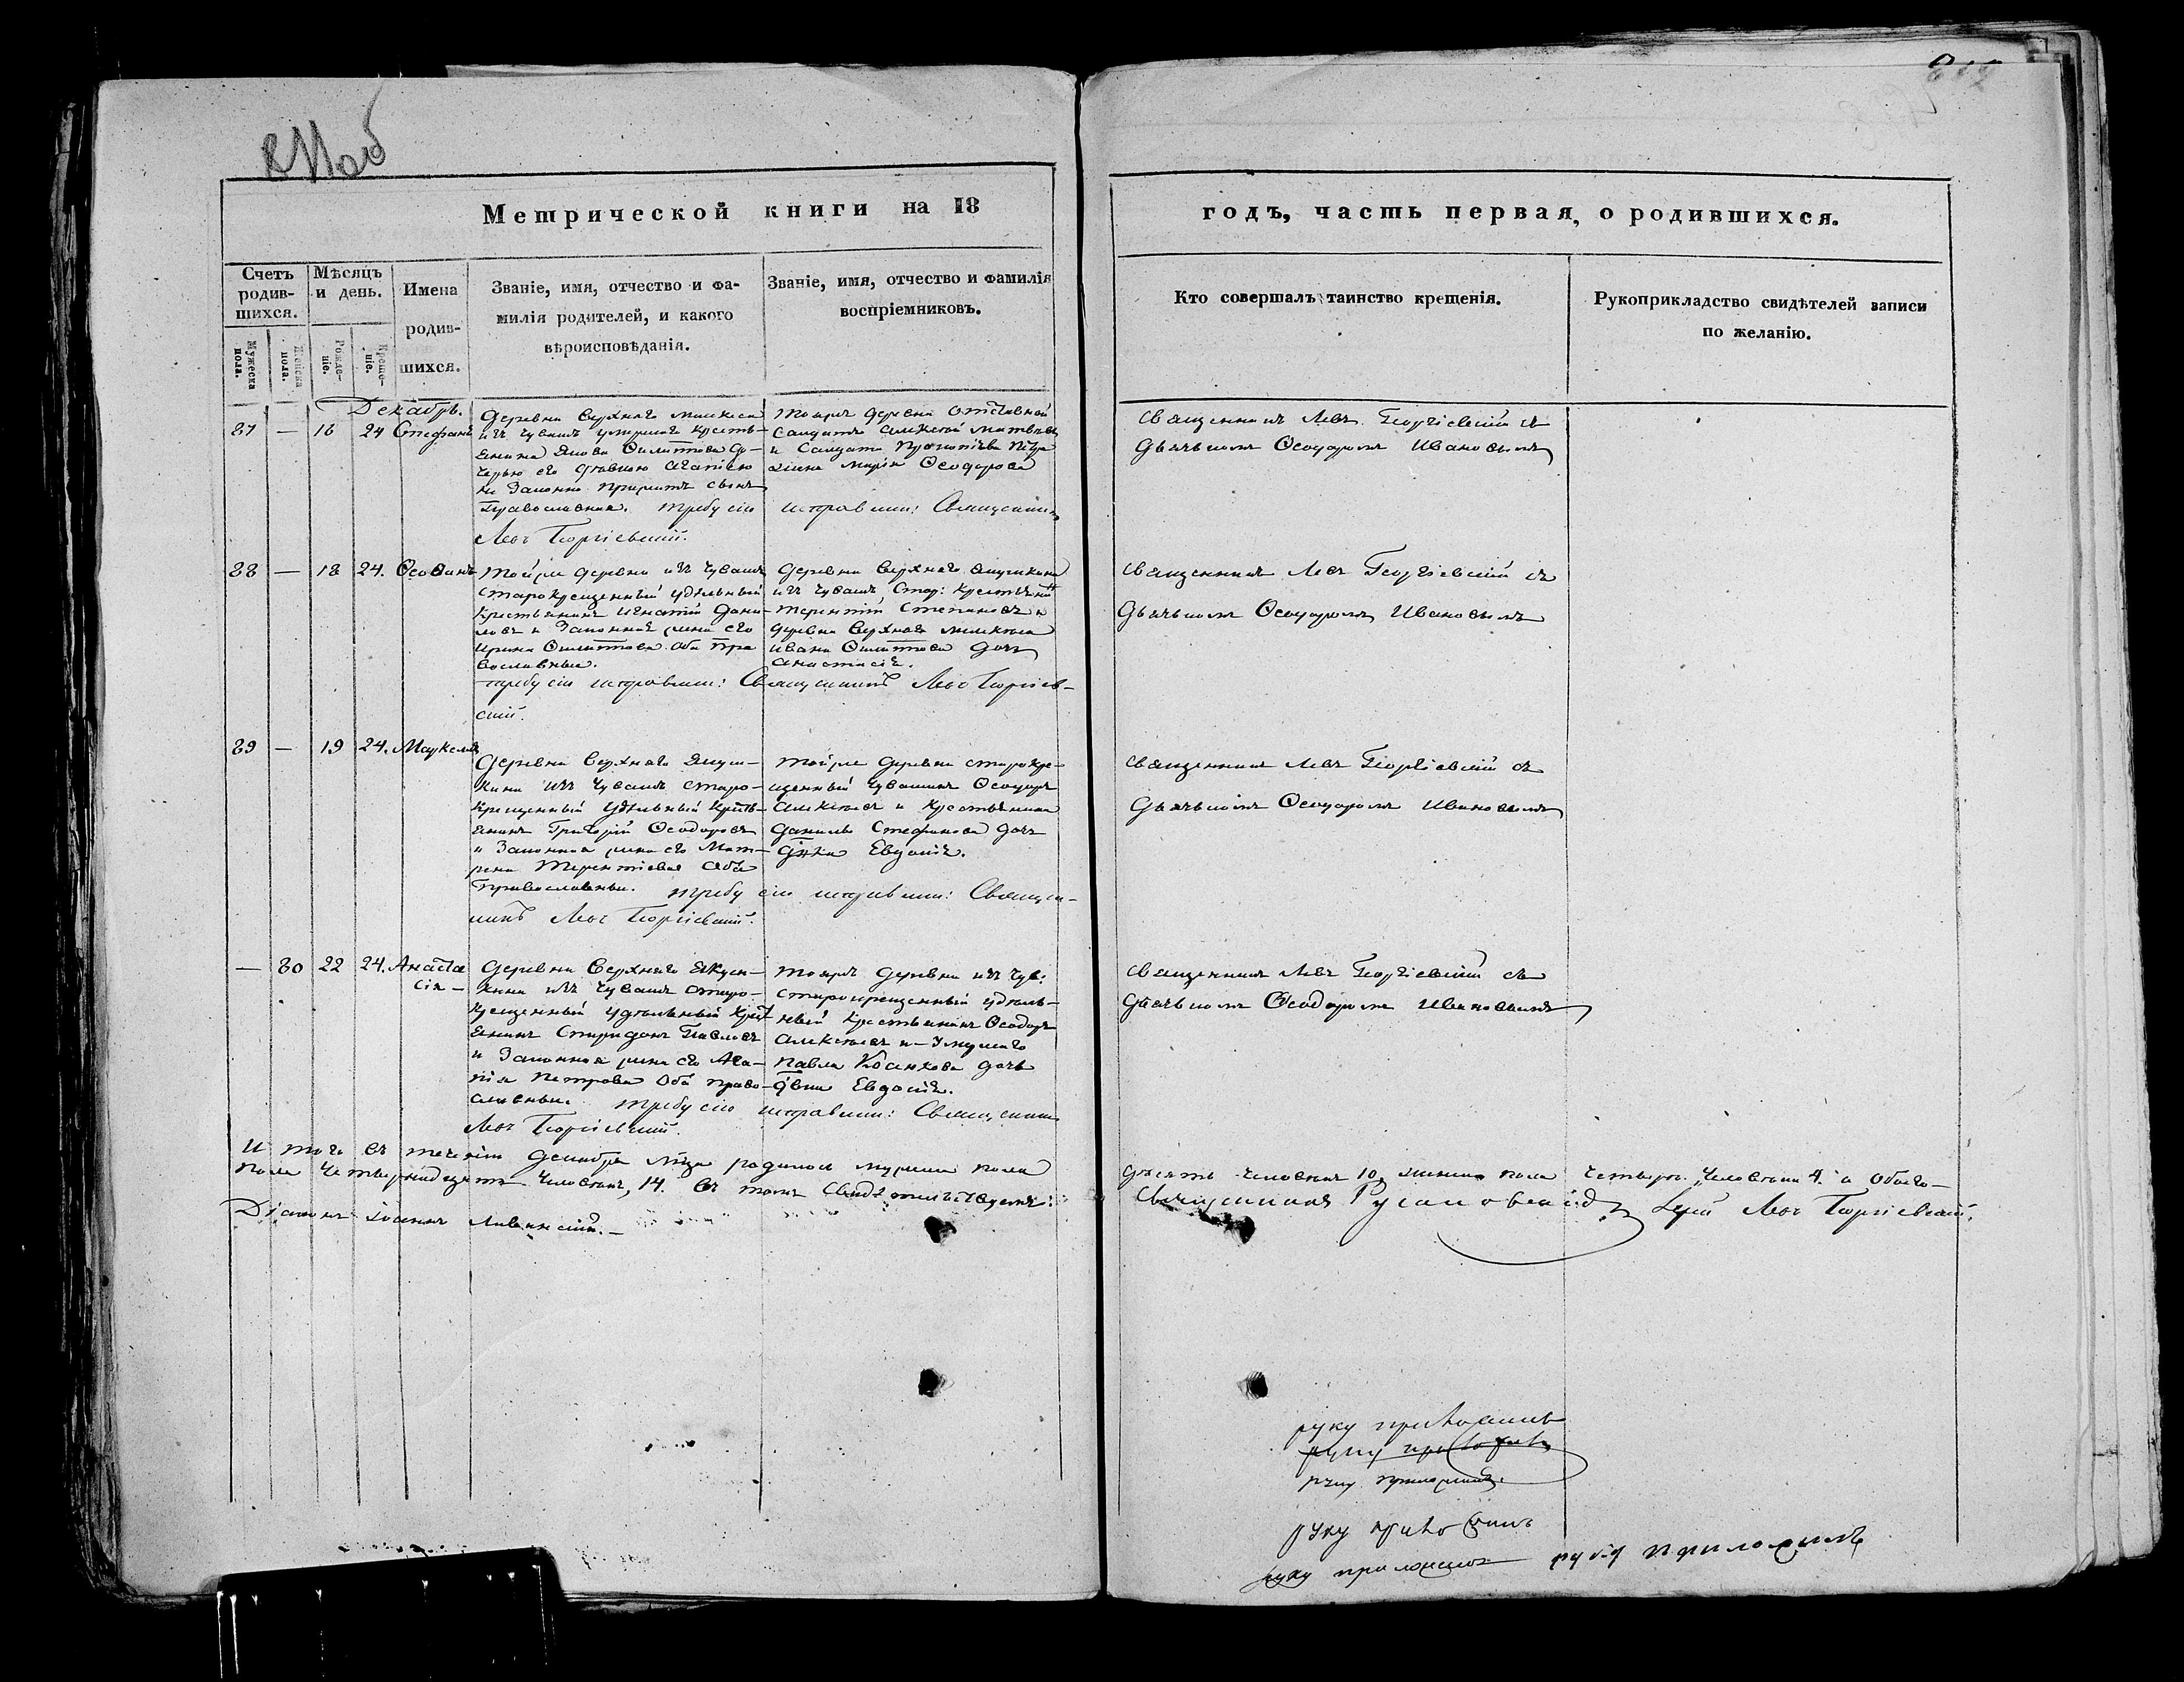 Метрической книги на 18
годъ, часть первая, о родившихся.
Счетъ родив-шихся.
Мѣсяцъ и день.
Имена родив-шихся.
Званіе, имя, отчество и фа-
милія родителей, и какого
вѣроисповѣданія.
Званіе, имя, отчество и фамилія
воспріемниковъ.
Кто совершалъ таинство крещенія.
Рукоприкладство свидѣтелей записи
по желанію.
Мужеска пола.
Женска пола.
Рожде-ніе.
Креще-ніе.
Декабрь.
87 — 16 24 Стефанъ
деревни Верхнаго
изъ Чувашъ умершаго кресть-
янина Якова Филиппова до-
черью его дѣвкою Агапіею
не законно прижитъ сынъ
Православная. требу сію исправлялъ: Священникъ
Левъ Георгіевскій.
тояже деревни отставной
солдатъ Алексѣй Матвѣевъ
и солдата Прокопіева
жена Марія Ѳеодорова
Священникъ Левъ Георгіевскій съ
дьячкомъ Ѳеодоромъ Ивановымъ
88 — 18 24.
тойже деревни изъ Чувашъ
старокрещенный удѣльный
крестьянинъ Игнатій Дани-
ловъ и законная жена его
Ирина Филиппова оба пра
вославные.
требу сію исправлялъ: Священникъ Левъ Георгіев-
скій.
деревни Верхняго Якушкина
изъ Чувашъ Стар: крестьянинъ
Терентій Степановъ и
деревни Верхняго
Ивана Филиппова дочь
Анастасія.
Священникъ Левъ Георгіевскій съ
дьячкомъ Ѳеодоромъ Ивановымъ
89 — 19 24. Маркелъ
деревни Верхняго Якуш-
кина изъ Чувашъ старо-
крещенный удѣльный кресть-
янинъ Григорій Ѳеодоровъ
и законная жена его Мат-
рена Терентіева оба
православные. требу сію исправлялъ: Священ-
никъ Левъ Георгіевскій.
тойже деревни старокре-
щенный Чувашинъ Ѳеодоръ
Алексѣевъ и крестьянина
Данилы Стефанова дочь
дѣвка Евдокія.
Священникъ Левъ Георгіевскій съ
дьячкомъ Ѳеодоромъ Ивановымъ
— 80 22 24. Анаста
сія —
деревни Верхняго Якуш-
кина изъ Чувашъ старо-
крещенный удѣльный крест
янинъ Спиридонъ Павловъ
и законная жена его Ага-
пія Петрова оба право-
славные. требу сію исправлялъ: Священникъ
Левъ Георгіевскій.
тояже деревни изъ Чув:
старокрещенный удѣль-
ный крестьянинъ Ѳеодоръ
Алексѣевъ и умершаго
Павла дочь
дѣвка Евдокія.
Священникъ Левъ Георгіевскій съ
дьячкомъ Ѳеодоромъ Ивановымъ
И того въ теченіи Декабря мѣца родилось мужеска пола
десять человѣкъ 10, женска пола четыре человѣка 4. а обоего—
пола четырнадцать человѣкъ, 14. въ томъ свидѣтельствуемъ:
Священникъ Іерей Левъ Георгіевскій.
Діаконъ Іоаннъ
руку приложилъ
руку приложилъ
руку приложилъ.
руку приложилъ
руку приложилъ руку приложилъ